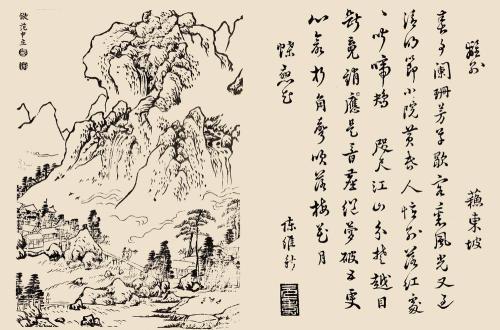 倣范中立
離別 蘇東坡
春事闌珊芳草歇客裏風光又過
清明節小院黃昏人憶別落紅處
々聞啼鴂咫尺江山分楚越目
斷魂銷應是音塵絕夢破五更
心欲折角聲吹落梅花月
蝶戀花